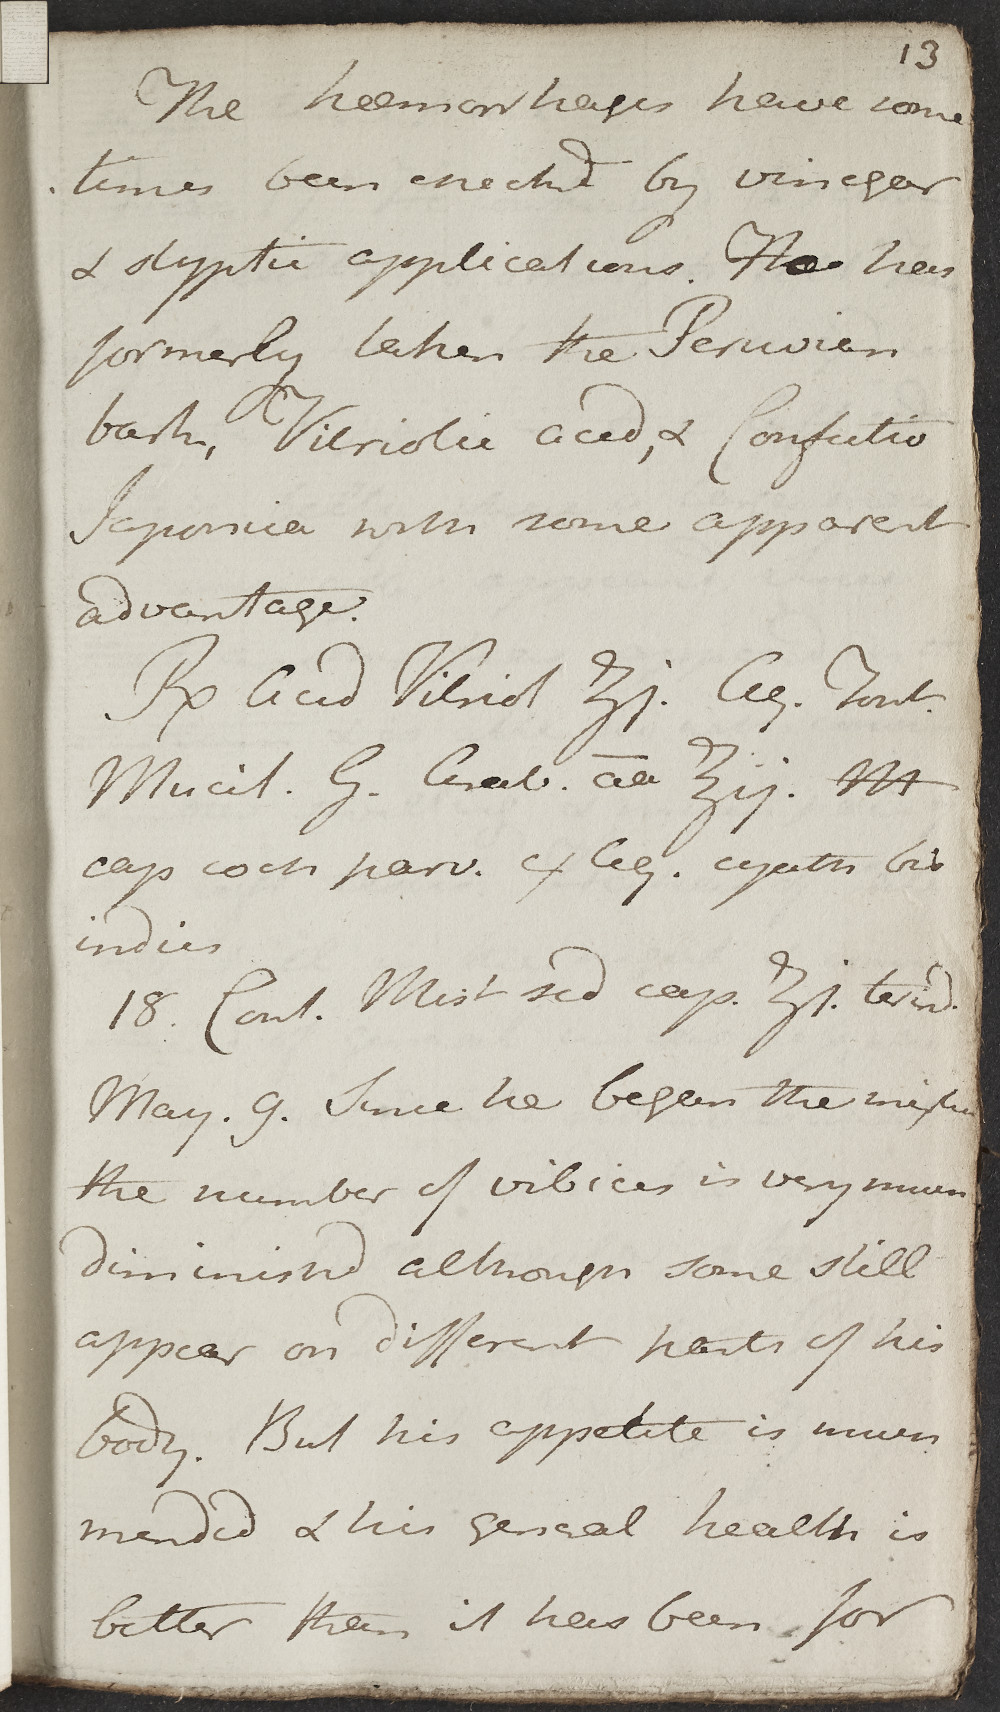 13
The hæmorrhages have some
times been checked by vinegar
& styptic applications. He has
formerly taken the Peruvian
bark, Vitriolic acid, & Confectio
Japonica with some apparent
advantage.
Rx Acid Vitriol ʒj. Aq. Font.
Mucil. G. Arab. āā ℥ij. M
cap coch parv. ex Aq. cyath bis
indies
18. Cont. Mist sed cap. ʒj. ter ind.
May. 9. Since he began the mixture
the number of vibices is very much
diminishd although some still
appear on different parts of his
body. But his appetite is much
mended & his general health is
better than it has been for